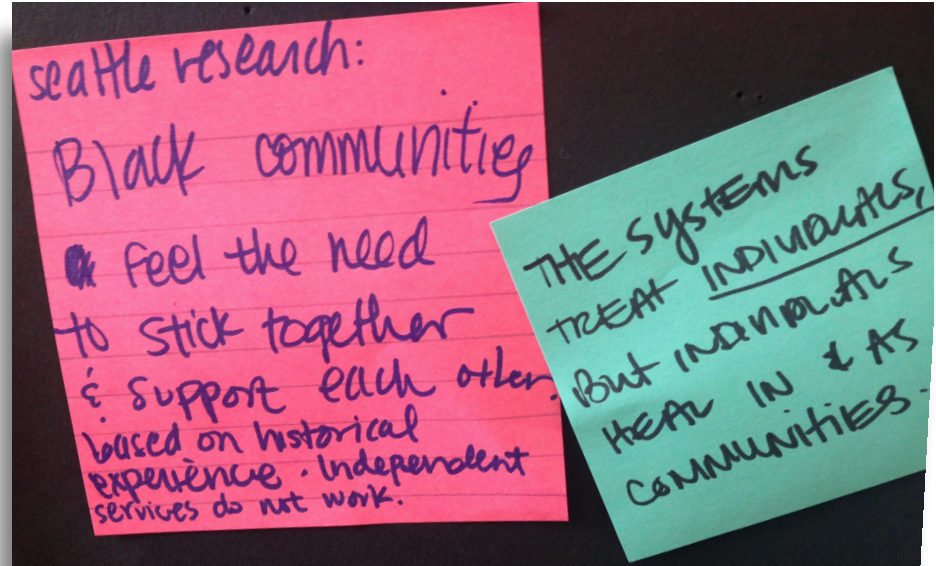 seattle research:
Black communities
feel the need
to stick together
& support each other.
based on historical
experience. Independent
services do not work.
THE SYSTEMS
TREAT INDIVIDUALS,
BUT INDIVIDUALS
HEAL IN & AS
COMMUNITIES.